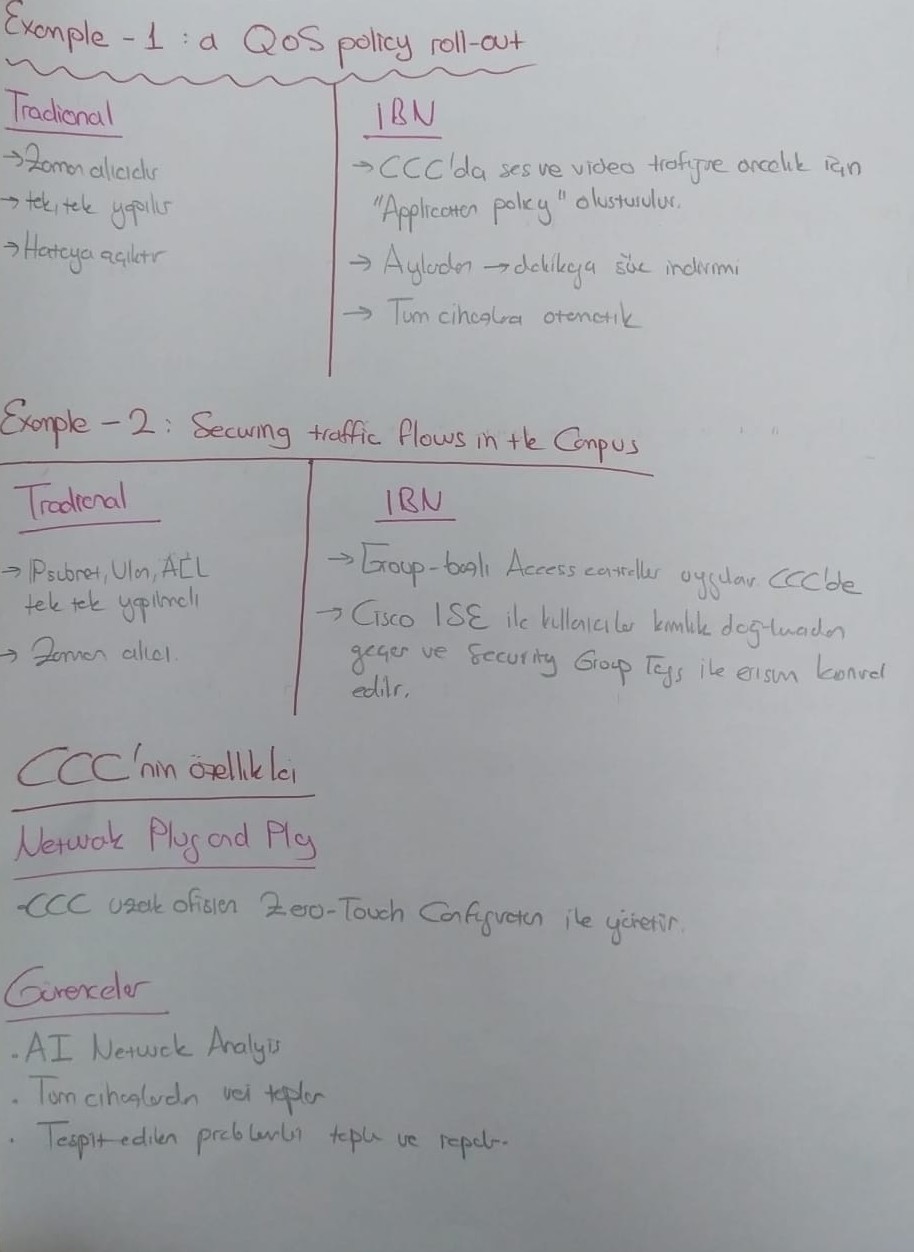 Example - 1 : a QoS policy roll-out
Tradional
→ Zaman alıcıdır
→ tek, tek yapılır
→ Hataya açıktır
IBN
→ CCC'da ses ve video trafiğine öncelik için
"Application policy" oluşturulur.
→ Aylardan → dakikaya süre indirimi
→ Tüm cihazlara otomatik
Example - 2 : Securing traffic flows in the Campus
Tradional
→ IP subnet, Vlan, ACL
tek tek yapılmalı
→ Zaman alıcı.
IBN
→ Group-bağlı Access controller uygular. CCC'de
→ Cisco ISE ile kullanıcılar kimlik doğrulamadan
geçer ve Security Group Tags ile erişim kontrol
edilir.
CCC'nin özellikleri
Network Plug and Play
-CCC uzak ofisleri Zero-Touch Configuration ile yönetir.
Güvenceler
. AI Network Analysis
. Tüm cihazlardan veri toplar
. Tespit edilen problemleri toplar ve raporlar.